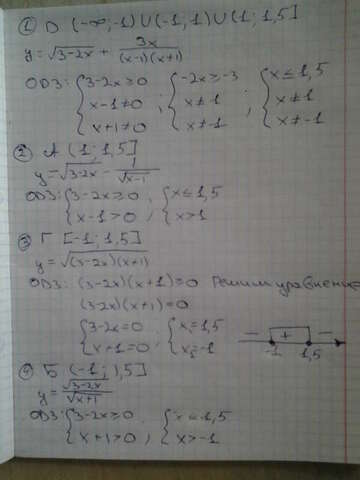 ① D (-∞; -1) U (-1; 1) U (1; 1,5]
y = √(3-2x) + 3x/((x-1)(x+1))
ОДЗ: { 3-2x ≥ 0 ; { -2x ≥ -3 ; { x ≤ 1,5
{ x-1 ≠ 0 { x ≠ 1 { x ≠ 1
{ x+1 ≠ 0 { x ≠ -1 { x ≠ -1
② A (1; 1,5]
y = √(3-2x) - 1/√(x-1)
ОДЗ: { 3-2x ≥ 0 ; { x ≤ 1,5
{ x-1 > 0 { x > 1
③ Г [-1; 1,5]
y = √((3-2x)(x+1))
ОДЗ: (3-2x)(x+1) ≥ 0 Решим уравнение
(3-2x)(x+1) = 0
{ 3-2x = 0 ; { x₁ = 1,5
{ x+1 = 0 { x₂ = -1
− + −
-1 1,5
Б (-1; 1,5]
y = √(3-2x)/√(x+1)
ОДЗ: { 3-2x ≥ 0 ; { x ≤ 1,5
{ x+1 > 0 { x > -1